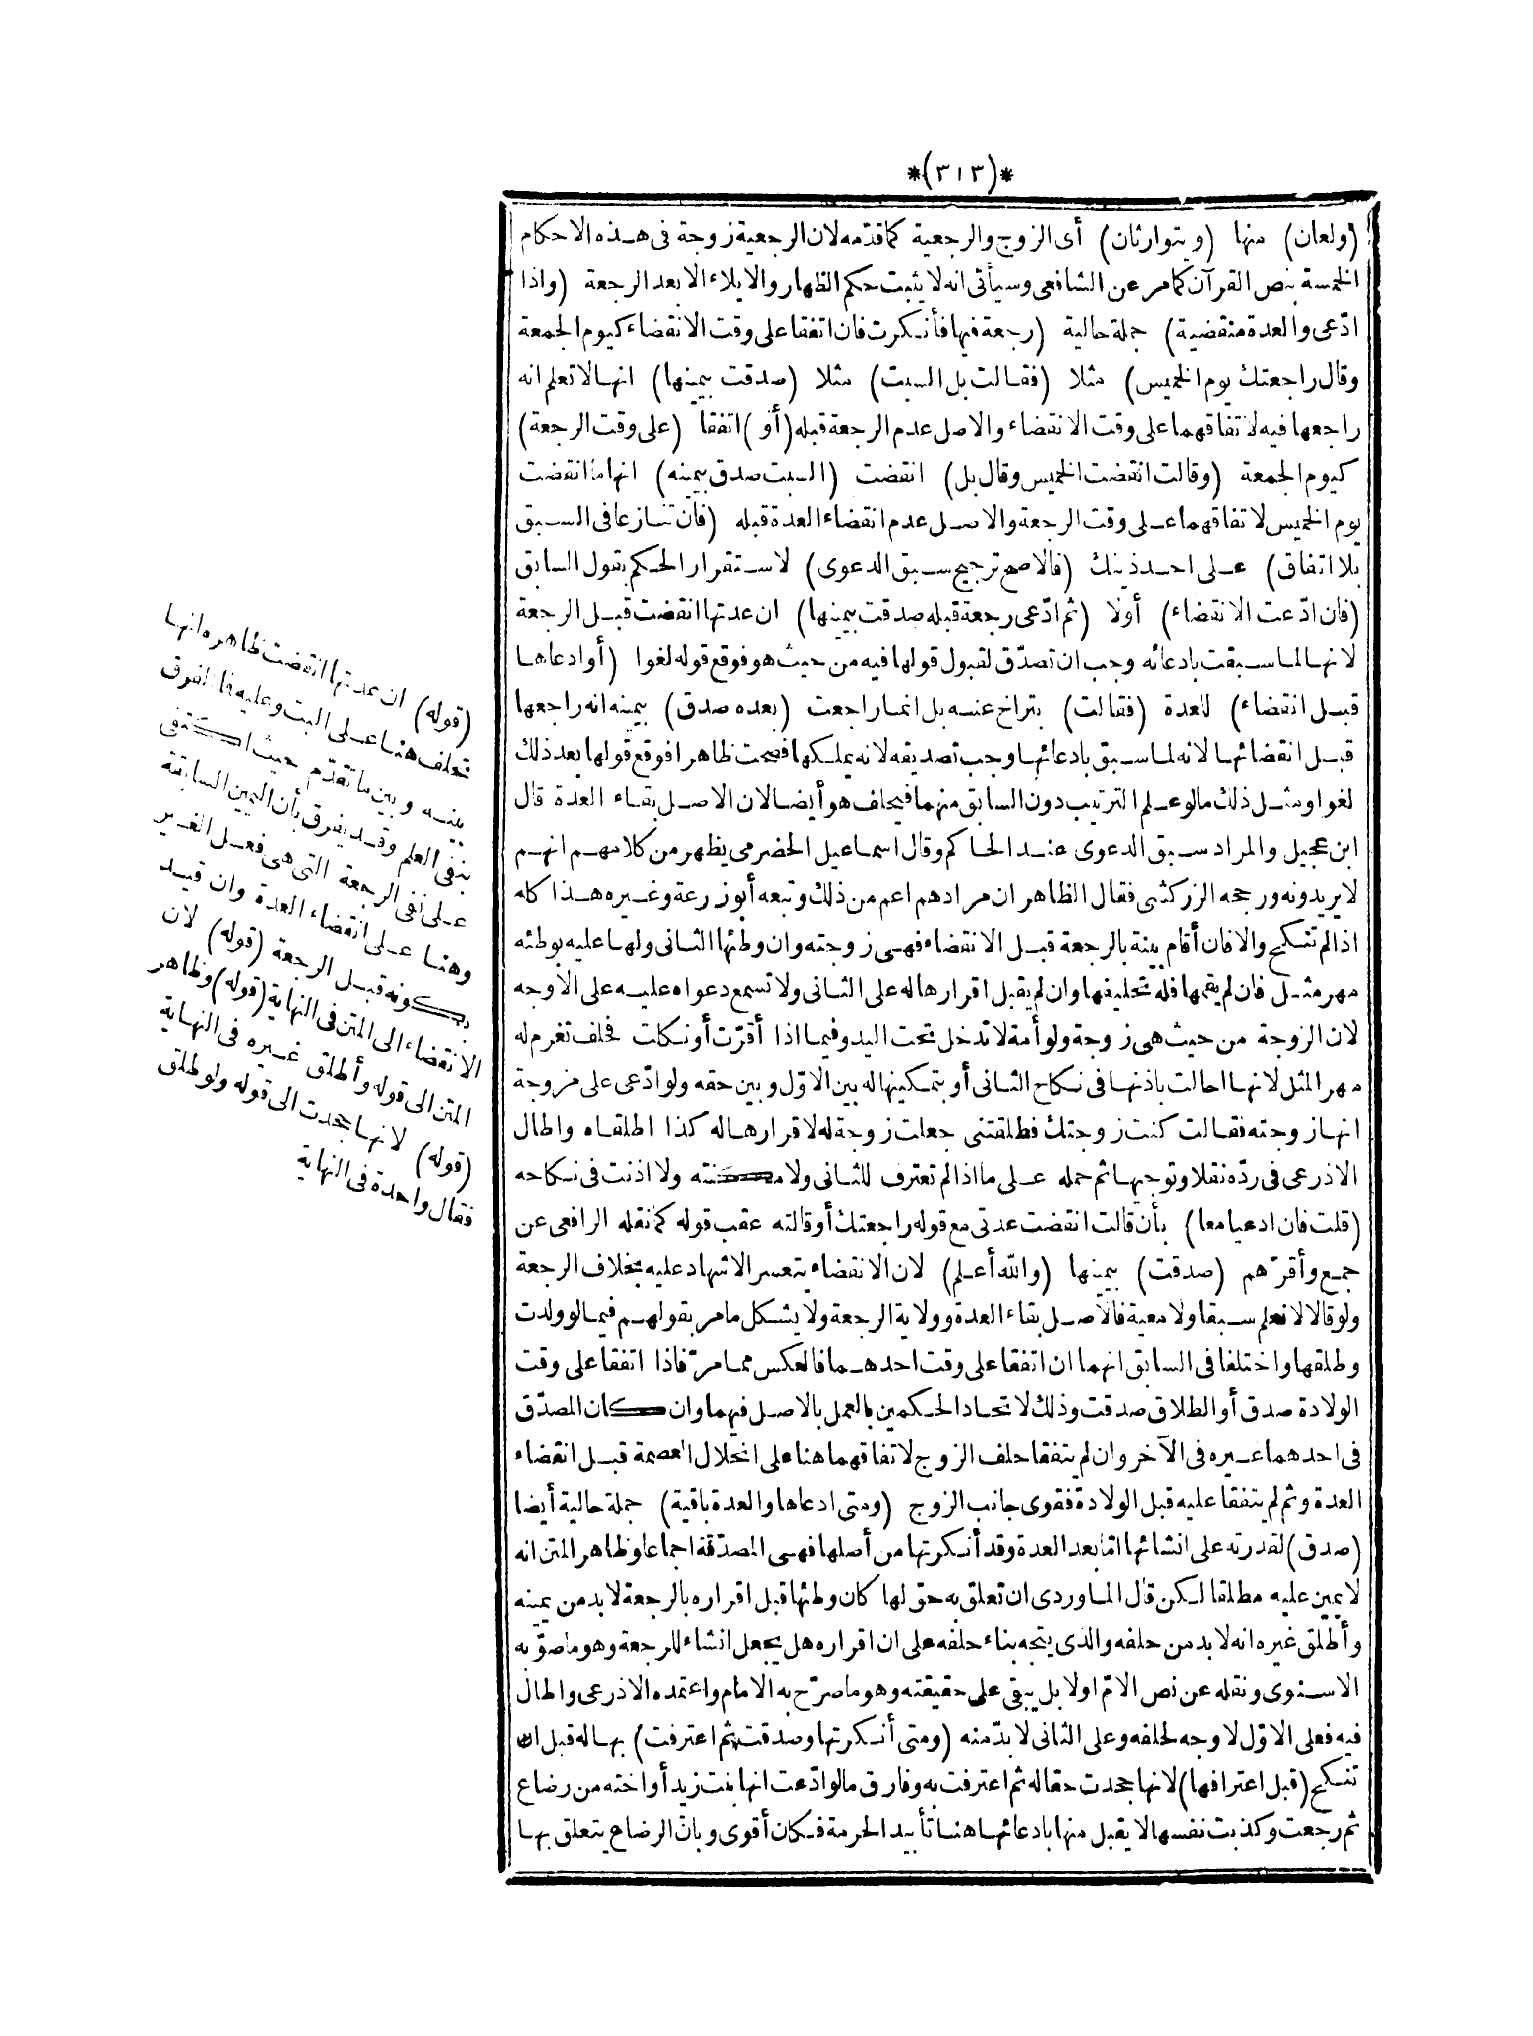 *(٣١٣)*
(ولعان) منها (ويتوارثان) أى الزوج والرجعية كما قدّمه لان الرجعية زوجة فى هذه الاحكام
الخمسة بنص القرآن كما مر عن الشافعى وسيأتى انه لا يثبت حكم الظهار والايلاء الا بعد الرجعة (واذا
ادّعى والعدة منقضية) جملة حالية (رجعة فيها فأنكرت فان اتفقا على وقت الانقضاء كيوم الجمعة
وقال راجعتك يوم الخميس) مثلا (فقالت بل السبت) مثلا (صدقت بيمينها) انها لا تعلم انه
راجعها فيه لاتفاقهما على وقت الانقضاء والاصل عدم الرجعة قبله (أو) اتفقا (على وقت الرجعة)
كيوم الجمعة (وقالت انقضت الخميس وقال بل) انقضت (السبت صدق بيمينه) انها ما انقضت
يوم الخميس لاتفاقهما على وقت الرجعة والاصل عدم انقضاء العدة قبله (فان تنازعا فى السبق
بلا اتفاق) على احد ذينك (فالاصح ترجيح سبق الدعوى) لاستقرار الحكم بقول السابق
(فان ادّعت الانقضاء) أولا (ثم ادّعى رجعة قبله صدقت بيمينها) ان عدتها انقضت قبل الرجعة
لانها لما سبقت بادعائه وجب ان تصدّق لقبول قولها فيه من حيث هو فوقع قوله لغوا (أو ادعاها
قبل انقضاء) للعدة (فقالت) بتراخ عنه بل انما راجعت (بعده صدق) بيمينه انه راجعها
قبل انقضائها لانه لما سبق بادعائها وجب تصديقه لانه يملكها فصحت ظاهرا فوقع قولها بعد ذلك
لغوا ومثل ذلك ما لو علم الترتيب دون السابق منهما فيحلف هو أيضا لان الاصل بقاء العدة قال
ابن عجيل والمراد سبق الدعوى عند الحاكم وقال اسماعيل الحضرمى يظهر من كلامهم انهم
لا يريدونه ورجحه الزركشى فقال الظاهر ان مرادهم اعم من ذلك وتبعه أبو زرعة وغيره هذا كله
اذا لم تنكح والا فان أقام بينة بالرجعة قبل الانقضاء فهى زوجته وان وطئها الثانى ولها عليه بوطئه
مهر مثل فان لم يقمها فله تحليفها وان لم يقبل اقرارها له على الثانى ولا تسمع دعواه عليه على الاوجه
لان الزوجة من حيث هى زوجة ولو أمة لا تدخل تحت اليد وفيما اذا أقرّت أو نكلت فحلف تغرم له
مهر المثل لانها احالت باذنها فى نكاح الثانى أو بتمكينها له بين الاوّل وبين حقه ولو ادّعى على مزوجة
انها زوجته فقالت كنت زوجتك فطلقتنى جعلت زوجة له لاقرارها له كذا اطلقاه واطال
الاذرعى فى ردّه نقلا وتوجيها ثم حمله على ما اذا لم تعترف للثانى ولا مكنته ولا اذنت فى نكاحه
(قلت فان ادعيا معا) بأن قالت انقضت عدتى مع قوله راجعتك أو قالته عقب قوله كما نقله الرافعى عن
جمع وأقرّهم (صدقت) بيمينها (والله أعلم) لان الانقضاء يتعسر الاشهاد عليه بخلاف الرجعة
ولو قالا لا نعلم سبقا ولا معية فالاصل بقاء العدة وولاية الرجعة ولا يشكل ما مر بقولهم فيما لو ولدت
وطلقها واختلفا فى السابق انهما ان اتفقا على وقت احدهما فالعكس مما مرّ فاذا اتفقا على وقت
الولادة صدق أو الطلاق صدقت وذلك لاتحاد الحكمين بالعمل بالاصل فيهما وان كان المصدّق
فى احدهما غيره فى الآخر وان لم يتفقا حلف الزوج لاتفاقهما هنا على انحلال العصمة قبل انقضاء
العدة وثم لم يتفقا عليه قبل الولادة فقوى جانب الزوج (ومتى ادعاها والعدة باقية) جملة حالية أيضا
(صدق) لقدرته على انشائها اما بعد العدة وقد أنكرتها من أصلها فهى المصدّقة اجماعا وظاهر المتن انه
لا يمين عليه مطلقا لكن قال الماوردى ان تعلق به حق لها كان وطئها قبل اقراره بالرجعة لا بد من يمينه
وأطلق غيره انه لا بد من حلفه والذى يتجه بناء حلفه على ان اقراره هل يجعل انشاء للرجعة وهو ما صوّبه
الاسنوى ونقله عن نص الامّ اولا بل يبقى على حقيقته وهو ما صرّح به الامام واعتمده الاذرعى واطال
فيه فعلى الاوّل لا وجه لحلفه وعلى الثانى لا بدّ منه (ومتى أنكرتها وصدقت ثم اعترفت) بها له قبل ان
تنكح (قبل اعترافها) لانها جحدت حقا له ثم اعترفت به وفارق ما لو ادّعت انها بنت زيد أو اخته من رضاع
ثم رجعت وكذبت نفسها لا يقبل منها بادعائها هنا تأبيد الحرمة فكان أقوى وبان الرضاع يتعلق بها
(قوله) ان عدتها انقضت ظاهره انها
تحلف هنا على البت وعليه فما الفرق
بينه وبين ما تقدّم حيث اكتفى
بنفى العلم وقد يفرق بأن اليمين السابقة
على نفى الرجعة التى هى فعل الغير
وهنا على انقضاء العدة وان قيد
بكونه قبل الرجعة (قوله) لان
الانقضاء الى المتن فى النهاية (قوله) وظاهر
المتن الى قوله وأطلق غيره فى النهاية
(قوله) لانها جحدت الى قوله ولو طلق
فقال واحدة فى النهاية